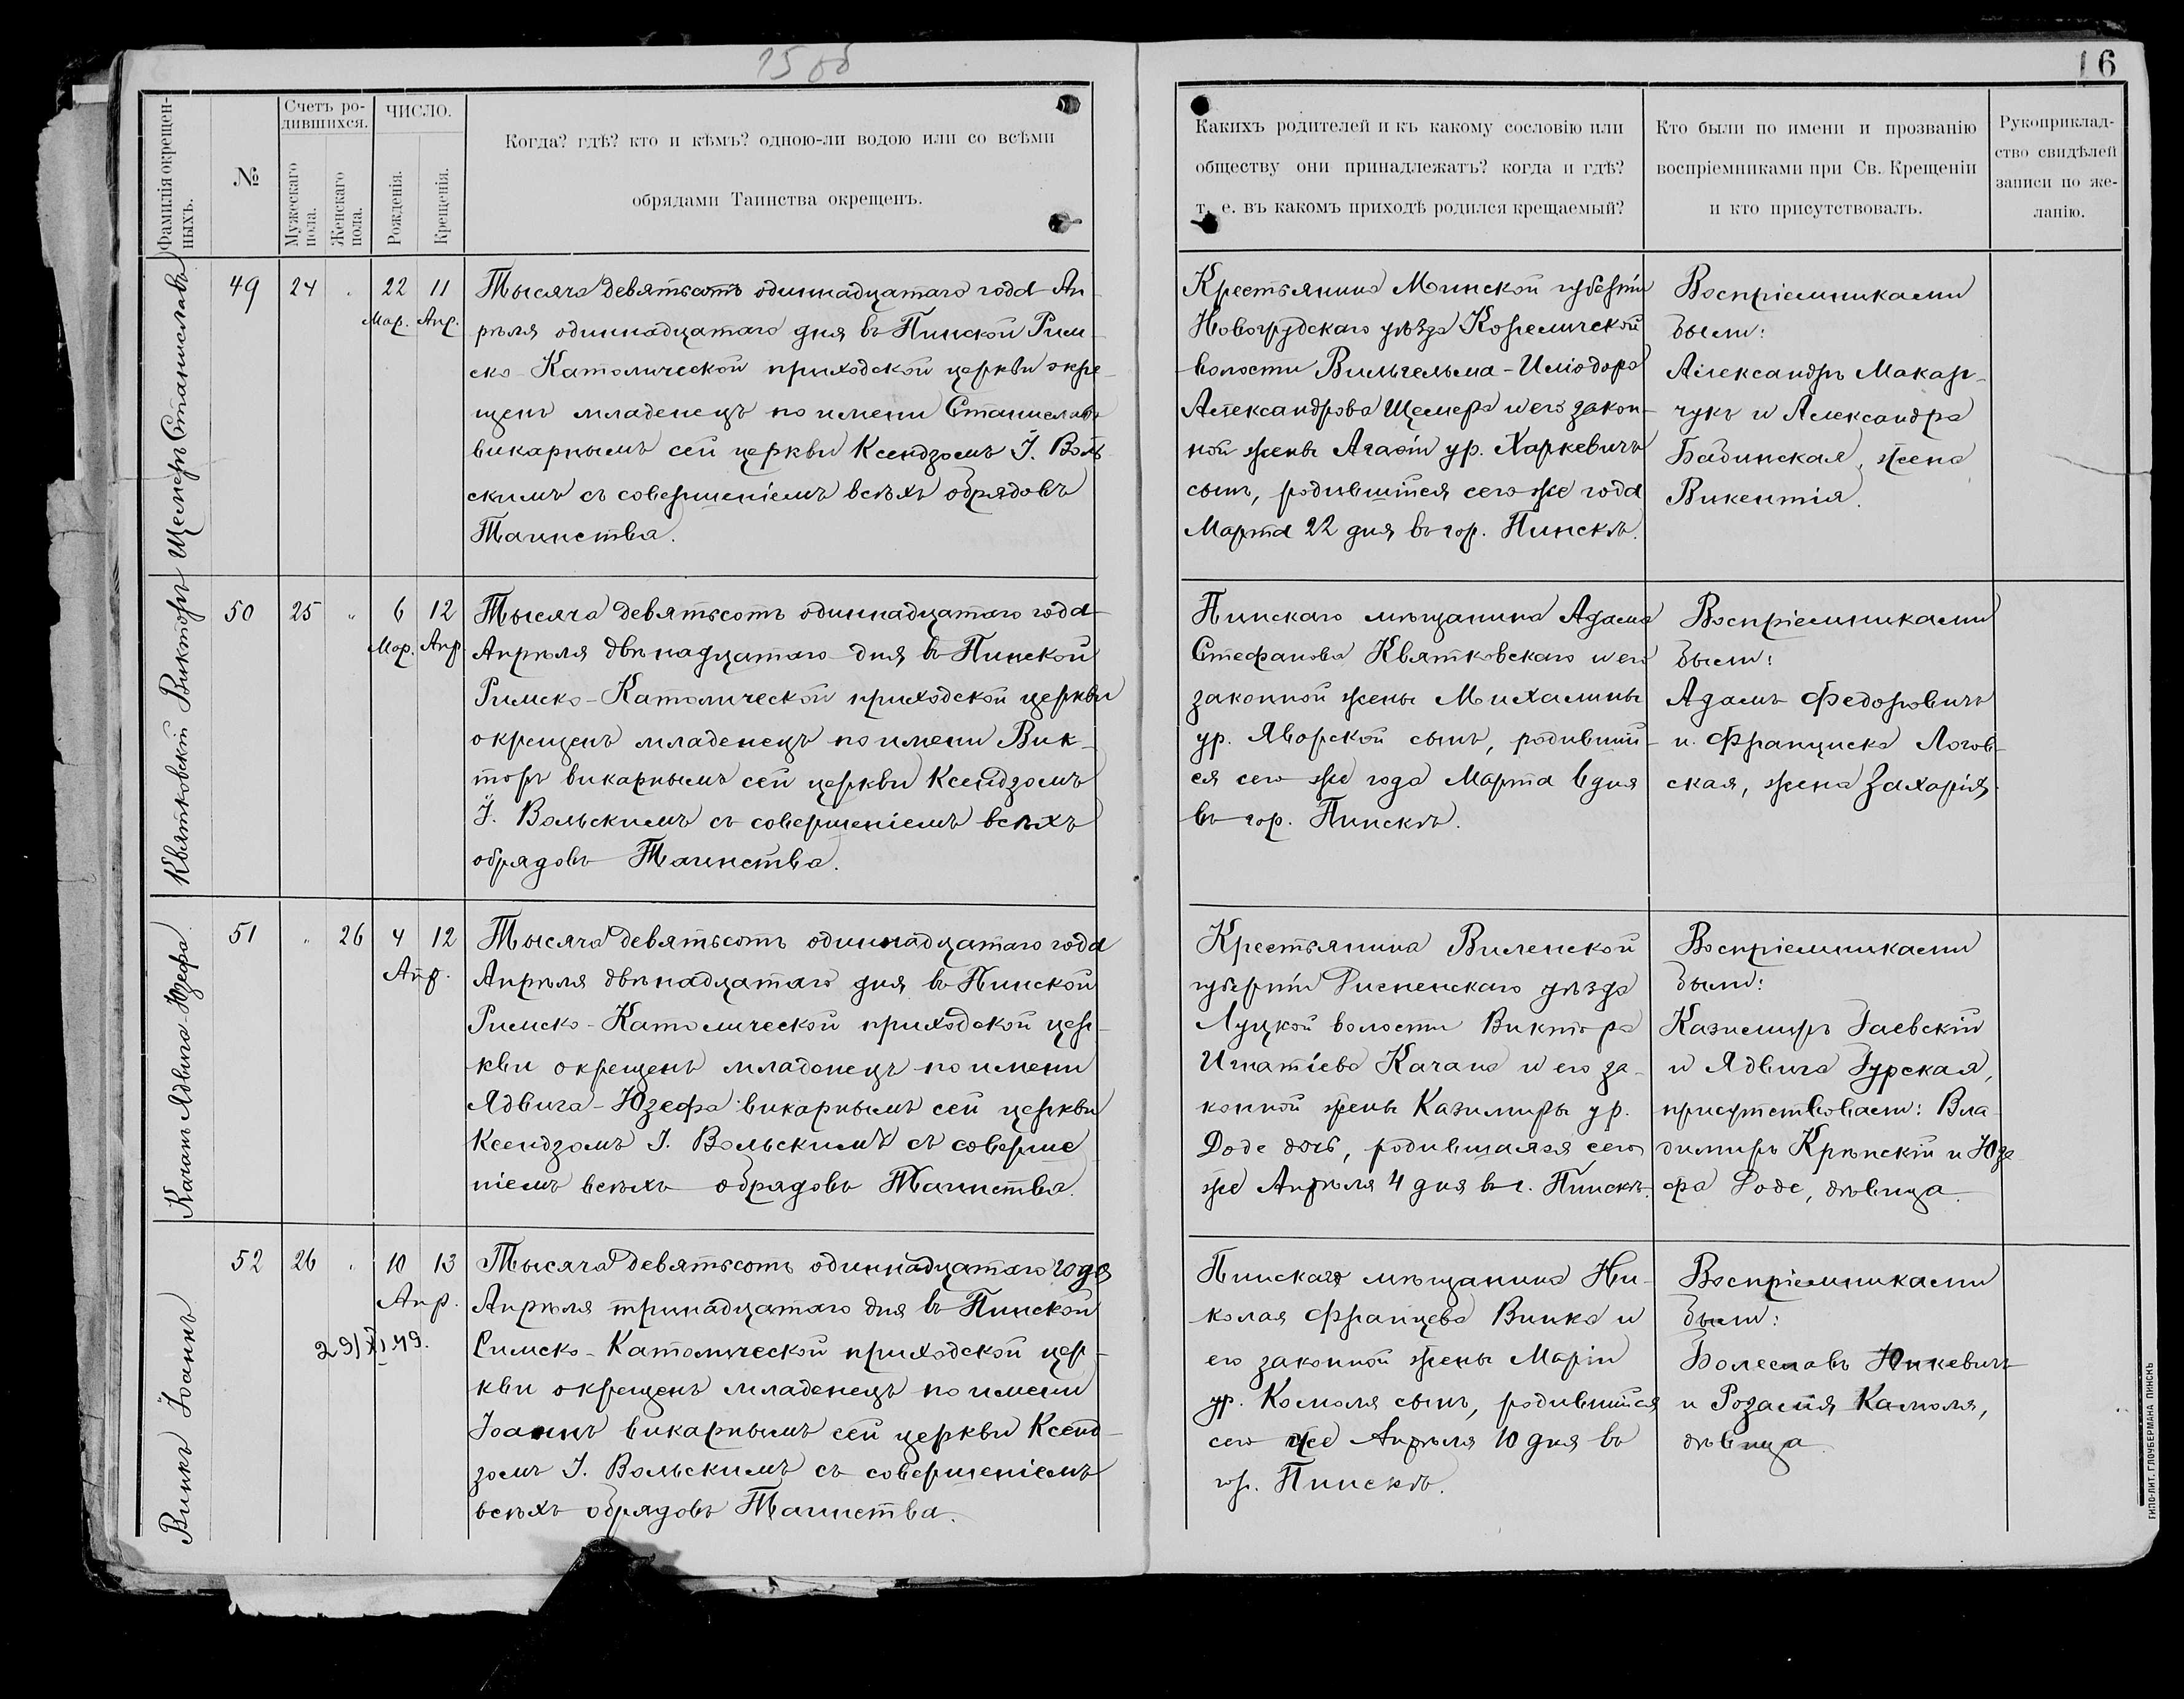 15 об
16
Фамилія окрещен-
ныхъ.
№
Счетъ ро-
дившихся.
Мужескаго
пола.
Женскаго
пола.
ЧИСЛО.
Рожденія.
Крещенія.
Когда? гдѣ? кто и кѣмъ? одною-ли водою или со всѣми
обрядами Таинства окрещенъ.
Какихъ родителей и къ какому сословію или
обществу они принадлежатъ? когда и гдѣ?
т. е. въ какомъ приходѣ родился крещаемый?
Кто были по имени и прозванію
воспріемниками при Св. Крещеніи
и кто присутствовалъ.
Рукоприклад-
ство свидѣлей
записи по же-
ланію.
Щемеръ Станиславъ
49 24 " 22 11
Мар. Апр.
Тысяча девятьсотъ одиннадцатаго года Ап-
рѣля одиннадцатаго дня въ Пинской Рим-
ско-Католической приходской церкви окре-
щенъ младенецъ по имени Станиславъ
викарнымъ сей церкви Ксендзомъ І. Воль-
скимъ съ совершеніемъ всѣхъ обрядовъ
Таинства.
Крестьянина Минской губерніи
Новогрудскаго уѣзда Кореличской
волости Вильгельма-Иліодора
Александрова Щемера и его закон-
ной жены Агафіи ур. Харкевичъ
сынъ, родившійся сего же года
Марта 22 дня въ гор. Пинскѣ.
Воспріемниками
были:
Александръ Макар-
чукъ и Александра
Бабинская, жена
Викентія.
Квятковскій Викторъ
50 25 " 6 12
Мар. Апр.
Тысяча девятьсотъ одиннадцатаго года
Апрѣля двѣнадцатаго дня въ Пинской
Римско-Католической приходской церкви
окрещенъ младенецъ по имени Вик-
торъ викарнымъ сей церкви Ксендзомъ
І. Вольскимъ съ совершеніемъ всѣхъ
обрядовъ Таинства.
Пинскаго мѣщанина Адама
Стефанова Квятковскаго и его
законной жены Михалины
ур. Яворской сынъ, родивший-
ся сего же года Марта 6 дня
въ гор. Пинскѣ.
Воспріемниками
были:
Адамъ Федоровичъ
и Франциска Логов-
ская, жена Захарія.
Качанъ Ядвига Юзефа.
51 " 26 4 12
Апр.
Тысяча девятьсотъ одиннадцатаго года
Апрѣля двѣнадцатаго дня въ Пинской
Римско-Католической приходской цер-
кви окрещенъ младенецъ по имени
Ядвига-Юзефа викарнымъ сей церкви
Ксендзомъ І. Вольскимъ съ соверше
ніемъ всѣхъ обрядовъ Таинства.
Крестьянина Виленской
губерніи Дисненскаго уѣзда
Луцкой волости Виктора
Игнатіева Качана и его за-
конной жены Казимиры ур.
Доде дочь, родившаяся сего
же Апрѣля 4 дня въ г. Пинскѣ.
Воспріемниками
были:
Казимиръ Гаевскій
и Ядвига Гурская,
присутствовали: Вла-
димиръ Крѣпскій и Юзе-
фа Доде, дѣвица.
Винкъ Іоаннъ
52 26 " 10 13
Апр.
29/XI 49.
Тысяча девятьсотъ одиннадцатаго года
Апрѣля тринадцатаго дня въ Пинской
Римско-Католической приходской цер-
кви окрещенъ младенецъ по имени
Іоаннъ викарнымъ сей церкви Ксенд-
зомъ І. Вольскимъ съ совершеніемъ
всѣхъ обрядовъ Таинства.
Пинскаго мѣщанина Ни-
колая Францева Винка и
его законной жены Маріи
ур. Комоля сынъ, родившійся
сего же Апрѣля 10 дня въ
гор. Пинскѣ.
Воспріемниками
были:
Болеславъ Юнкевичъ
и Розалія Камоля,
дѣвица.
ТИПО-ЛИТ. ГЛОУБЕРМАНА ПИНСКЪ